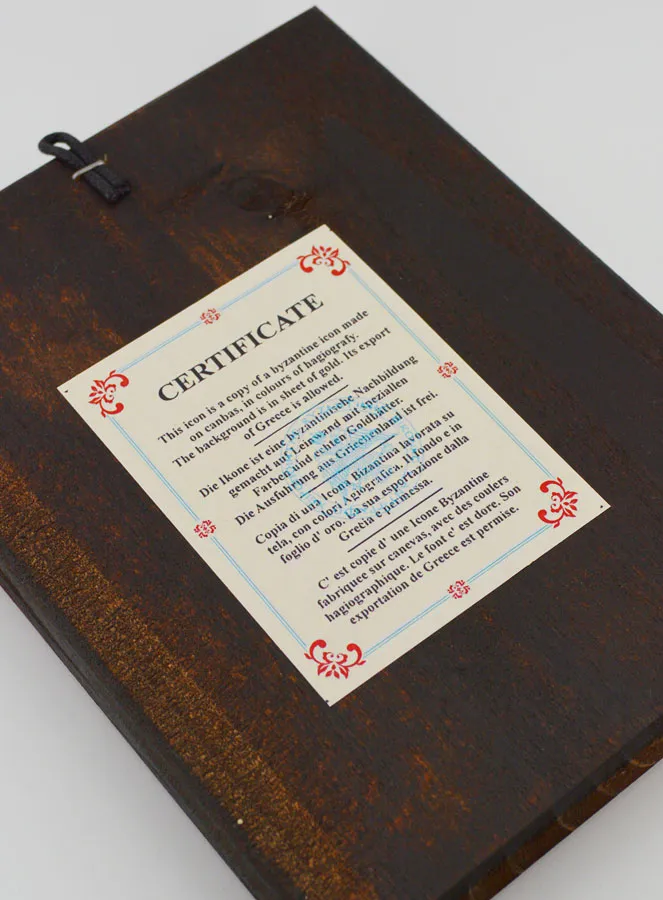 CERTIFICATE
This icon is a copy of a byzantine icon made
on canbas, in colours of hagiografy.
The background is in sheet of gold. Its export
of Greece is allowed.
Die Ikone ist eine byzantinische Nachbildung
gemacht auf Leinwand mit speziallen
Farben und echten Goldbätter.
Die Ausfuhrung aus Griechenland ist frei.
Copia di una Icona Bizantina lavorata su
tela, con colori Agiografica. Il fondo e in
foglio d' oro. La sua esportazione dalla
Grecia e permessa.
C' est copie d' une Icone Byzantine
fabriquee sur canevas, avec des coulers
hagiographique. Le font c' est dore. Son
exportation de Greece est permise.